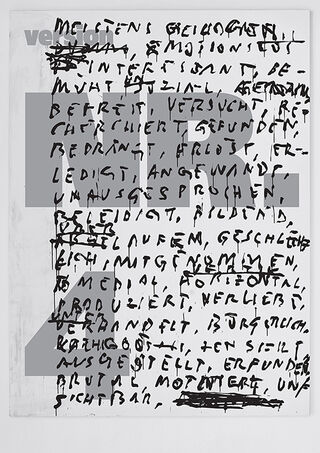 version
NR.
4
MEISTENS GEDICHTET,
EMOTIONSLOS
INTERESSANT, BE-
MÜHT, SOZIAL,
BEFREIT, VERSUCHT, RE-
CHERCHIERT, GEFUNDEN,
BEDRÄNGT, ERLÖST, ER-
LEDIGT, ANGEWANDT,
UNAUSGESPROCHEN,
BELEIDIGT, BILDEND,
GELAUFEN, GESCHLECHT-
LICH MITGENOMMEN,
MEDIAL, HORIZONTAL,
PRODUZIERT, VERLIEBT,
VERHANDELT, BÜRGERLICH,
ZENSIERT
AUSGESTELLT, ERFUNDEN
BRUTAL, MOTIVIERT, UN-
SICHTBAR,